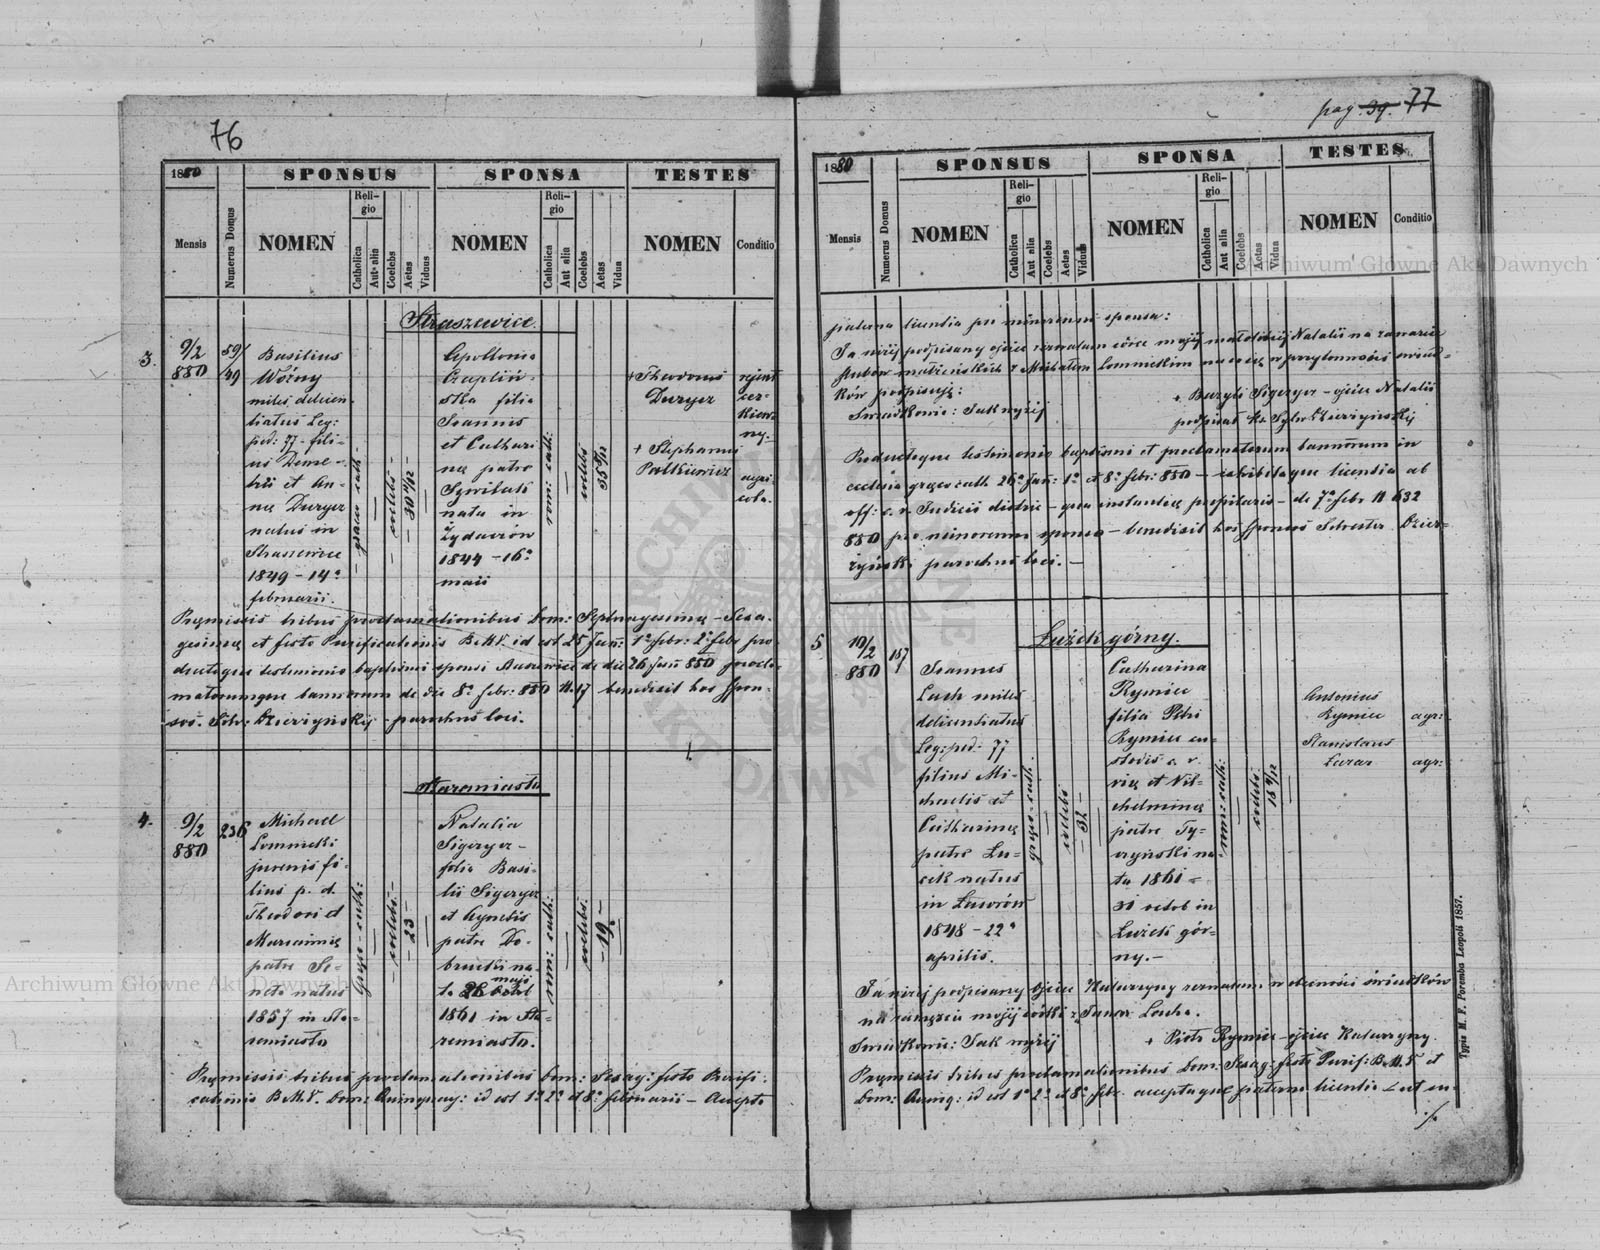 76
1880
SPONSUS
SPONSA
TESTES
Mensis
Numerus Domus
NOMEN
Religio
Catholica
Aut alia
Coelebs
Aetas
Viduus
NOMEN
Religio
Catholica
Aut alia
Coelebs
Aetas
Vidua
NOMEN
Conditio
Straszewice.
3.
9/2
880
59/
49
Basilius
Woźny
miles delicen-
tiatus Leg:
ped: 77 - fili-
us Deme-
trii et An-
nae Duryer
natus in
Straszewice
1849 - 14a
februarii.
graeco cath -
coelebs -
Apollonia
Czapliń-
ska filia
Joannis
et Cathari
nae patre
nata in
Żydaczów
1844 - 16a
maii
rom: cath:
coelebs
+ Theodorus
Duryer
+ Stephanus
cer-
kiew-
ny.
agri-
cola.
Praemissis tribus proclamationibus Dom: Septuagesimae - Sexa-
gesimae et festo Purificationis B.M.V. id est 25 Jan: 1a febr: 2a febr pro-
ductoque testimonio baptismi sponsi de die 26 Jan 880 procla-
matorumque bannorum de die 8a febr: 880 N. 17 benedixit hos spon-
sos. Dzierżyńskij - parochus loci.
Staremiasto
4.
9/2
880
236
Michael
Lomnicki
juvenis fi-
lius p. d.
Theodori et
Mariannae
patre Se-
neta natus
1857 in Sta-
remiasto
graeco - cath:
coelebs. -
- 23 -
Natalia
Sigeryer -
filia Basi-
lii Sigeryer
et Agnetis
patre Do-
brucki na-
ta 26 maji
1861 in Sta-
remiasto.
rom: cath:
coelebs.
- 19 -
Praemissis tribus proclamationibus Dom: Sexag: festo Purifi-
cationis B.M.V. Dom: Quinquag: id est 1a 2a et 8a februarii - Accepta
pag. 39. 77
1880
SPONSUS
SPONSA
TESTES
Mensis
Numerus Domus
NOMEN
Religio
Catholica
Aut alia
Coelebs
Aetas
Viduus
NOMEN
Religio
Catholica
Aut alia
Coelebs
Aetas
Vidua
NOMEN
Conditio
paterna licentia pro minorenni sponsa:
Ja niżej podpisany ojciec zezwalam córce mojej małoletniej Natalii na zawarcie
ślubów małżeńskich z Michałem Lomnickim na co się w przytomności świad-
ków podpisuję:
Świadkowie: Jak wyżej
+ Bazyli Sigeryer - ojciec Natalii
podpisał ks. Sylw. Dzierżyńskij
Productoque testimonio baptismi et proclamatorum bannorum in
ecclesia graeco cath 26a Jan: 1a et 8a febr: 880 - exhibitaque licentia ab
off: c. r. Judicii district - qua instantiae pupilaris - de 7a febr N 632
880 pro minorenni sponsa - benedixit hos sponsos Silvester Dzier-
żyński parochus loci. -
Łużek górny.
5
10/2
880
187
Joannes
Lach miles
delicentiatus
Leg: ped: 77
filius Mi-
chaelis et
Catharinae
patre Lu-
cik natus
in Laworów
1848 - 22a
aprilis.
graeco - cath.
coelebs
- 32 -
Catharina
Rymiec
filia Petri
Rymiec cu-
stodis c. r.
viae et Wil-
chelminae
patre Ty-
czyński na-
ta 1861 -
31 octob in
Łużek gór-
ny. -
rom: cath:
coelebs.
Antonius
Rymiec
agr:
Stanislaus
Lazar
agr:
Ja niżej podpisany Ojciec Katarzyny zezwalam w obecności świadków
na zamęście mojej córki z Janem Lachem.
Świadkowie: Jak wyżej
+ Piotr Rymiec - ojciec Katarzyny.
Praemissis tribus proclamationibus Dom: Sexag: festo Purif: B.M.V et
Dom: Quinq: id est 1a 2a et 8a febr. acceptaque paterna licentia
./.
Typis M. F. Poremba Leopoli 1857.
Archiwum Główne Akt Dawnych
Archiwum Główne Akt Dawnych
ARCHIWUM GŁÓWNE AKT DAWNYCH